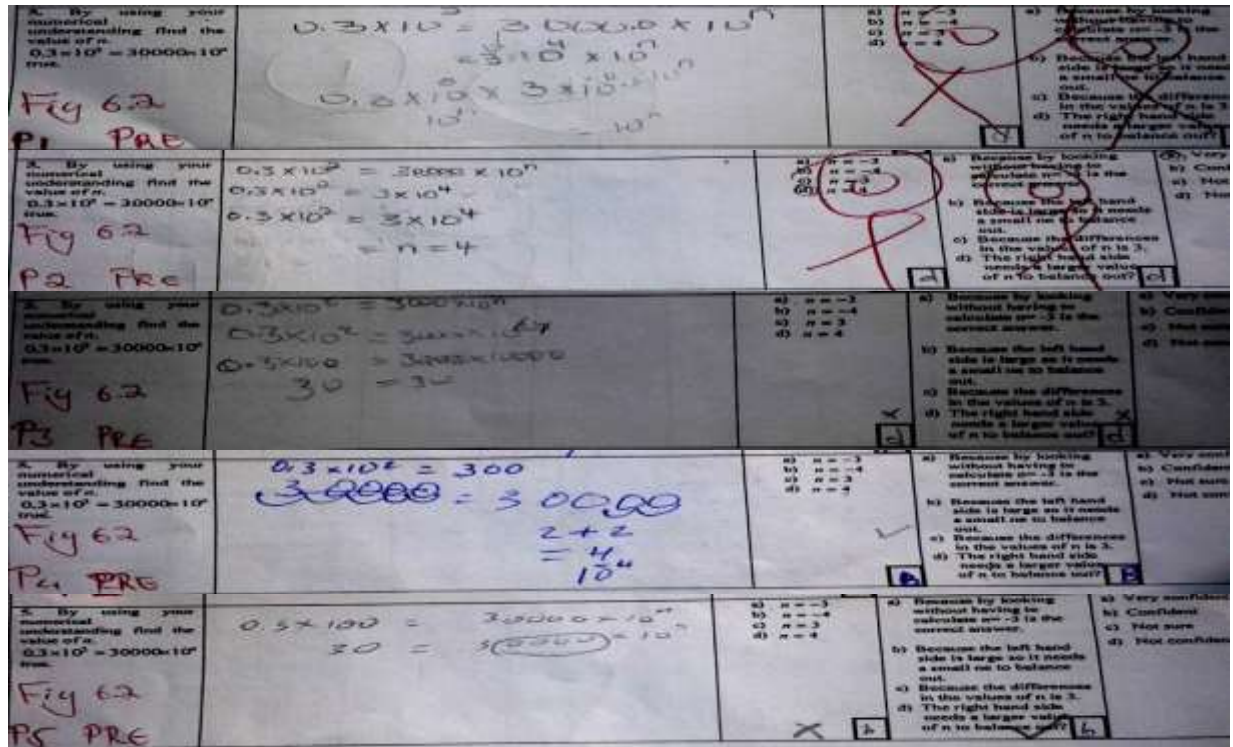 5. By using your
numerical
understanding find the
value of n.
0.3×10² = 30000×10ⁿ
true.
Fig 6.2
P1 PRE
= 10ⁿ
a) n = -3
b) n = -4
c) n = 3
d) n = 4
a) Because by looking
without having to
calculate n= -3 is the
correct answer.
b) Because the left hand
side is large so it needs
a small ne to balance
out.
c) Because the differences
in the values of n is 3.
d) The right hand side
needs a larger value
of n to balance out?
5. By using your
numerical
understanding find the
value of n.
0.3×10² = 30000×10ⁿ
true.
Fig 6.2
P2 PRE
0.3×10² = 30000 × 10ⁿ
0.3×10² = 3×10⁴
0.3×10² = 3×10⁴
= n = 4
a) n = -3
b) n = -4
c) n = 3
d) n = 4
d
a) Because by looking
without having to
calculate n= -3 is the
correct answer.
b) Because the left hand
side is large so it needs
a small ne to balance
out.
c) Because the differences
in the values of n is 3.
d) The right hand side
needs a larger value
of n to balance out?
d
5. By using your
numerical
understanding find the
value of n.
0.3×10² = 30000×10ⁿ
true.
Fig 6.2
P3 PRE
0.3×100 = 30000×10000
30 = 30
a) n = -3
b) n = -4
c) n = 3
d) n = 4
d
a) Because by looking
without having to
calculate n= -3 is the
correct answer.
b) Because the left hand
side is large so it needs
a small ne to balance
out.
c) Because the differences
in the values of n is 3.
d) The right hand side
needs a larger value
of n to balance out?
d
5. By using your
numerical
understanding find the
value of n.
0.3×10² = 30000×10ⁿ
true.
Fig 6.2
P4 PRE
0.3×10² = 300
30000 = 30000
2 + 2
= 4
10⁴
a) n = -3
b) n = -4
c) n = 3
d) n = 4
B
a) Because by looking
without having to
calculate n= -3 is the
correct answer.
b) Because the left hand
side is large so it needs
a small ne to balance
out.
c) Because the differences
in the values of n is 3.
d) The right hand side
needs a larger value
of n to balance out?
B
5. By using your
numerical
understanding find the
value of n.
0.3×10² = 30000×10ⁿ
true.
Fig 6.2
P5 PRE
0.3×100 = 30000×10ⁿ
30 = 30000 = 10ⁿ
a) n = -3
b) n = -4
c) n = 3
d) n = 4
b
a) Because by looking
without having to
calculate n= -3 is the
correct answer.
b) Because the left hand
side is large so it needs
a small ne to balance
out.
c) Because the differences
in the values of n is 3.
d) The right hand side
needs a larger value
of n to balance out?
b
a) Very confident
b) Confident
c) Not sure
d) Not confident